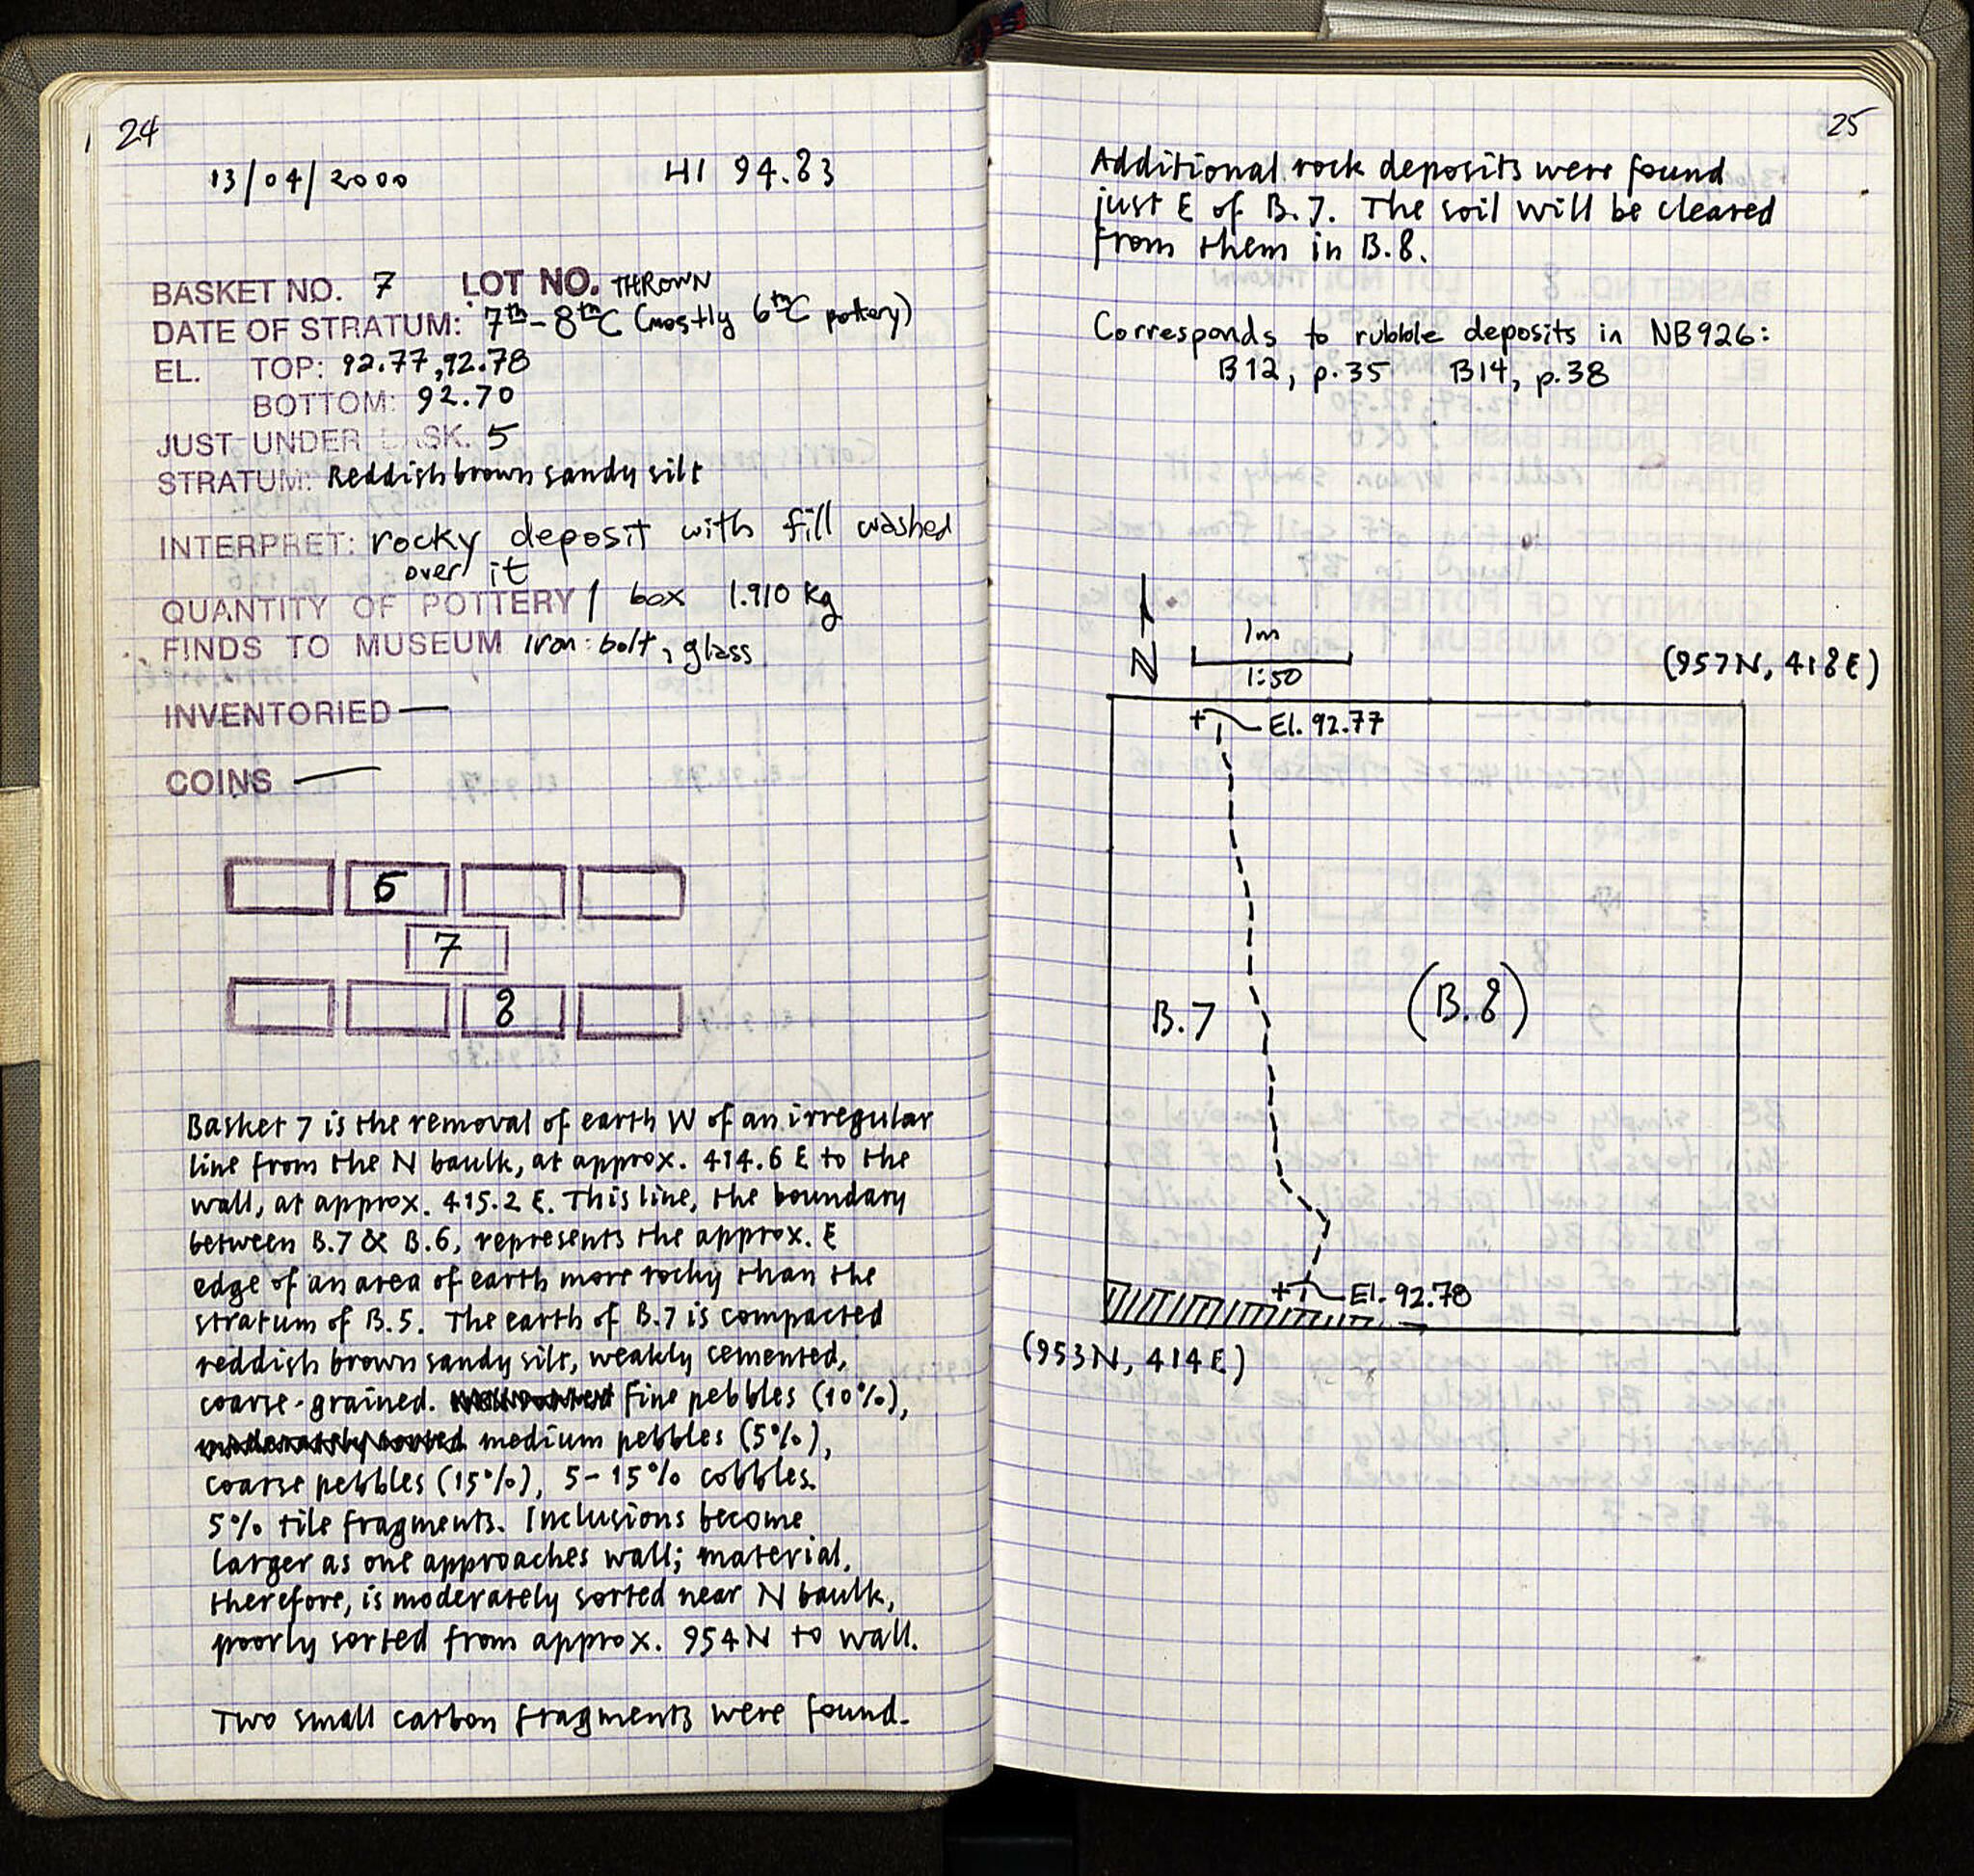 24
13/04/2000 HI 94.83
BASKET NO. 7 LOT NO. THROWN
DATE OF STRATUM: 7th-8thC (mostly 6thC pottery)
EL. TOP: 92.77, 92.78
BOTTOM: 92.70
JUST UNDER BASK. 5
STRATUM: Reddish brown sandy silt
INTERPRET: rocky deposit with fill washed
over it
QUANTITY OF POTTERY 1 box 1.910 kg
FINDS TO MUSEUM iron: bolt, glass
INVENTORIED —
COINS —
7
8
Basket 7 is the removal of earth W of an irregular
line from the N baulk, at approx. 414.6 E to the
wall, at approx. 415.2 E. This line, the boundary
between B.7 & B.6, represents the approx. E
edge of an area of earth more rocky than the
stratum of B.5. The earth of B.7 is compacted
reddish brown sandy silt, weakly cemented,
coarse-grained. fine pebbles (10%),
moderately sorted medium pebbles (5%),
coarse pebbles (15%), 5-15% cobbles.
5% tile fragments. Inclusions become
larger as one approaches wall; material,
therefore, is moderately sorted near N baulk,
poorly sorted from approx. 954N to wall.
Two small carbon fragments were found.
25
Additional rock deposits were found
just E of B.7. The soil will be cleared
from them in B.8.
Corresponds to rubble deposits in NB926:
B12, p.35 B14, p.38
N
1m
1:50
(957N, 418E)
El. 92.77
B.7
(B.8)
El. 92.78
(953N, 414E)